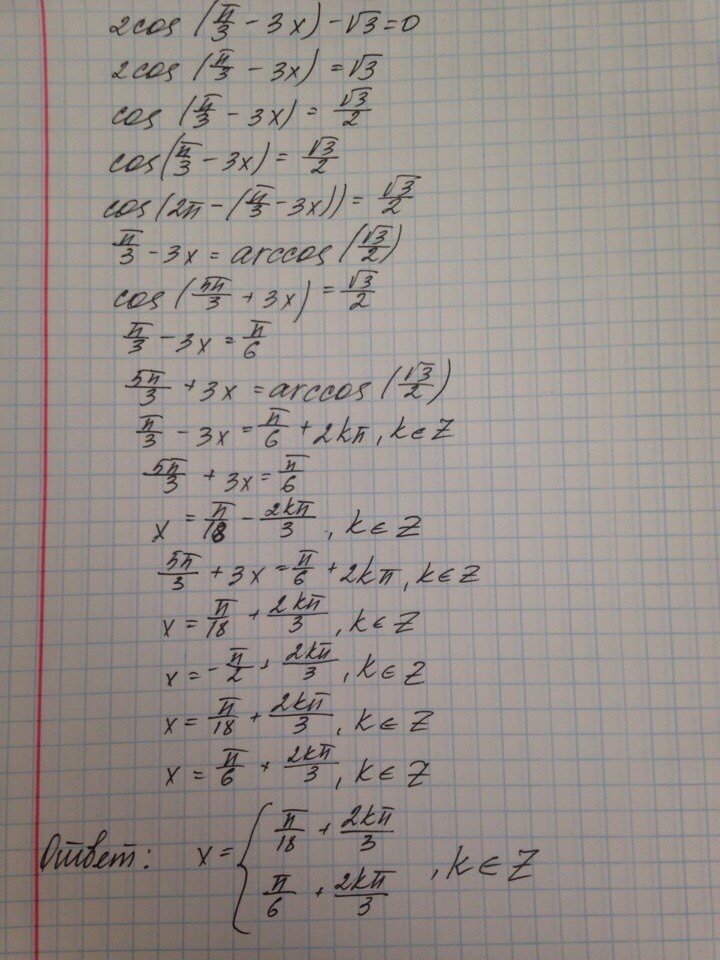 2cos (π/3 - 3x) - √3 = 0
2cos (π/3 - 3x) = √3
cos (π/3 - 3x) = √3/2
cos (π/3 - 3x) = √3/2
cos (2π - (π/3 - 3x)) = √3/2
π/3 - 3x = arccos (√3/2)
cos (5π/3 + 3x) = √3/2
π/3 - 3x = π/6
5π/3 + 3x = arccos (√3/2)
π/3 - 3x = π/6 + 2kπ, k ∈ Z
5π/3 + 3x = π/6
x = π/18 - 2kπ/3, k ∈ Z
5π/3 + 3x = π/6 + 2kπ, k ∈ Z
x = π/18 + 2kπ/3, k ∈ Z
x = -π/2 + 2kπ/3, k ∈ Z
x = π/18 + 2kπ/3, k ∈ Z
x = π/6 + 2kπ/3, k ∈ Z
Ответ: x = { π/18 + 2kπ/3
π/6 + 2kπ/3 , k ∈ Z